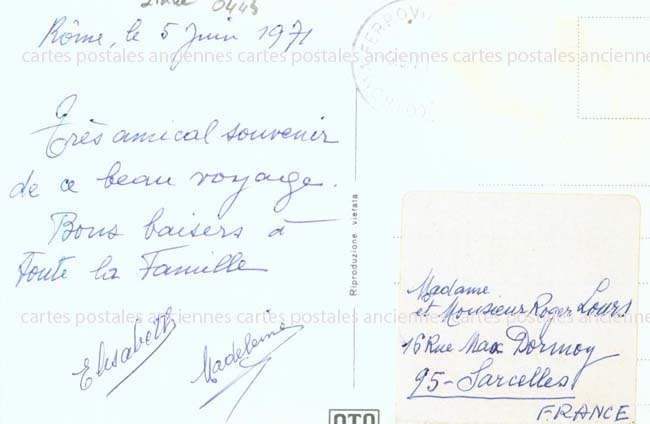 0445
Rôme, le 5 Juin 1971
FERROVI
cartes postales anciennes cartes postales anciennes cartes postales anciennes
Très amical souvenir
de ce beau voyage.
Bons baisers à
toute la Famille
Elisabeth
Madeleine
Riproduzione vietata
Madame
et Monsieur Roger Lours
16 Rue Max Dormoy
95 - Sarcelles
FRANCE
cartes postales anciennes cartes postales anciennes cartes postales anciennes
OTO